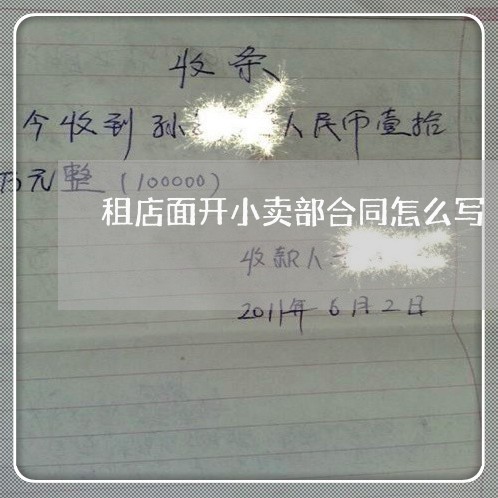 收条
今收到孙 人民币壹拾
万元整（100000）
租店面开小卖部合同怎么写
收款人
2011年6月2日